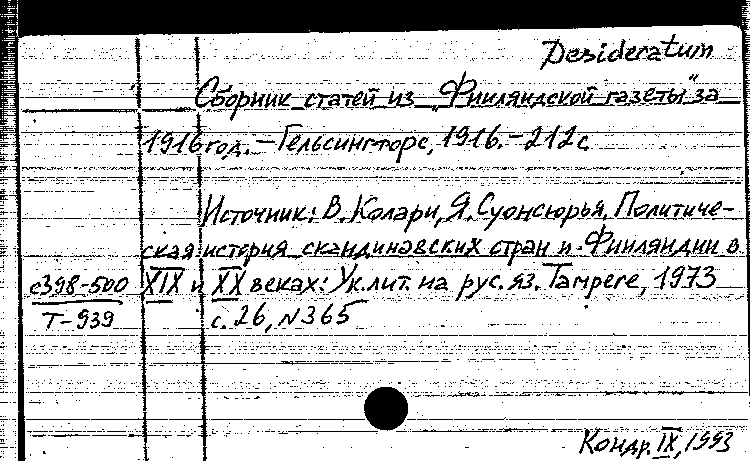 Desideratum
Сборник статей из „Финляндской газеты" за
1916 год. – Гельсингфорс, 1916. – 212 с.
Источник: В. Колари, Я. Суонсюрья. Политиче-
ская история скандинавских стран и Финляндии в
XIX и XX веках: Ук. лит. на рус. яз. Tampere, 1973
с. 26, N 365
с398-500
T-939
Кондр. IX, 1993